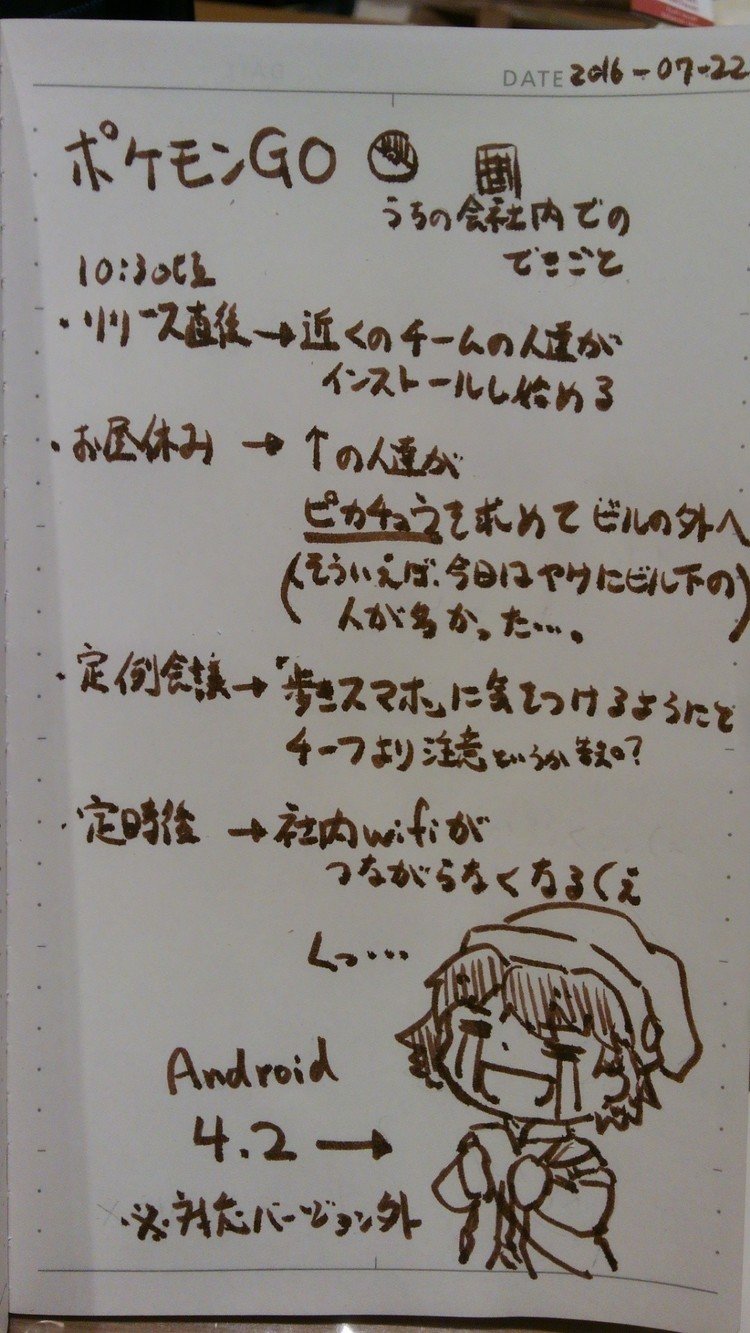 DATE 2016-07-22
ポケモンGO
うちの会社内での
できごと
10:30頃
・リリース直後→近くのチームの人達が
インストールし始める
・お昼休み→↑の人達が
ピカチュウを求めてビルの外へ
(そういえば、今日はヤケにビル下の
人が多かった…。)
・定例会議→「歩きスマホ」に気をつけるようにと
チーフより注意というか告知?
・定時後→社内wifiが
つながらなくなる(え
くっ…
Android
4.2→
※対応バージョン外